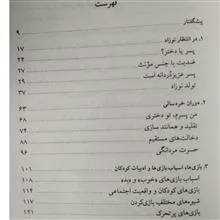 فهرست
پیشگفتار ۹
۱. در انتظار نوزاد ۱۷
پسر یا دختر؟ ۲۴
ضدیت با جنس مؤنث ۲۷
پسر عزیزدُردانه است ۳۲
تولد نوزاد ۳۷
۲. دوران خردسالی ۶۳
من پسرم، تو دختری ۶۳
تقلید و همانند سازی ۶۸
دخالت‌های مستقیم ۷۴
حسرت مردانگی
۳. بازی‌ها، اسباب بازی‌ها و ادبیات کودکان ۱۰۱
اسباب بازی‌های «خوب» و «بد» ۱۰۸
بازی‌های کودکان و واقعیت اجتماعی ۱۱۴
شیوه‌های مختلف بازی‌کردن ۱۱۷
بازی‌های پرتحرک ۱۲۱